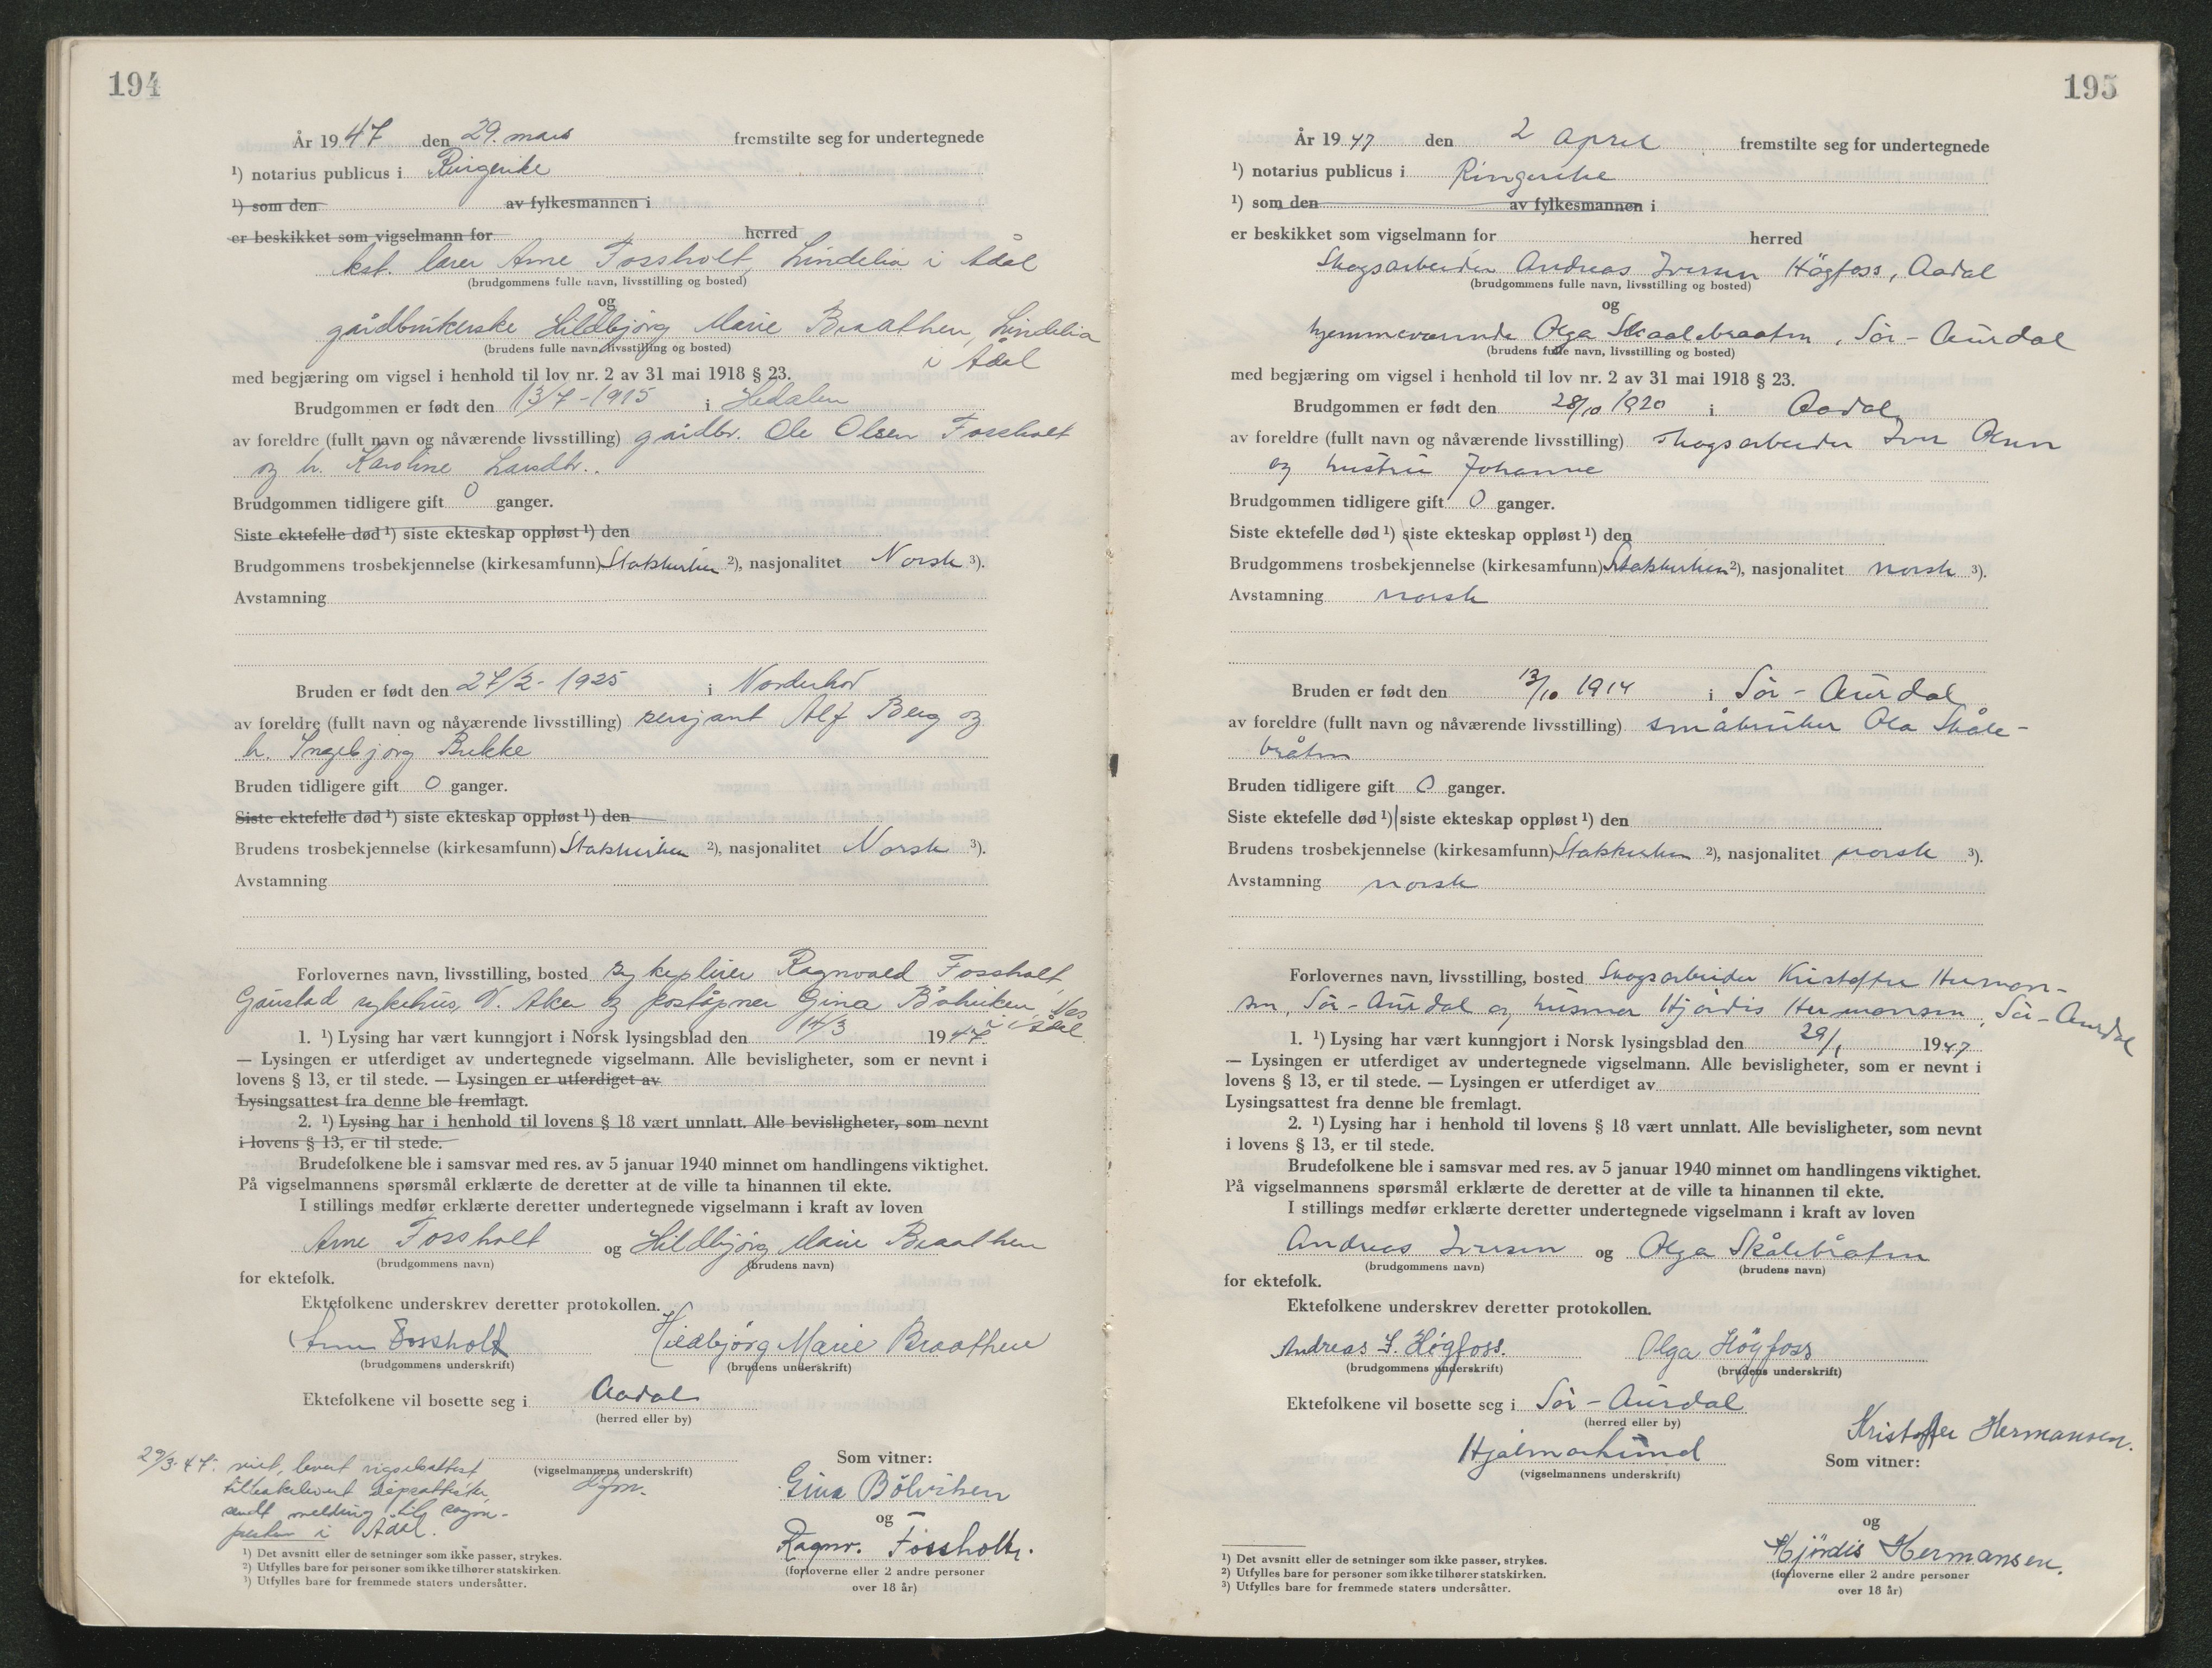 194
År 1947 den 29. mars fremstilte seg for undertegnede
¹) notarius publicus i Ringerike
¹) som den av fylkesmannen i
er beskikket som vigselmann for herred
kst. lærer Arne Fossholt, Lindelia i Ådal
(brudgommens fulle navn, livsstilling og bosted)
og
gårdbrukerske Hildbjörg Marie Braathen, Lindelia
(brudens fulle navn, livsstilling og bosted)
i Ådal
med begjæring om vigsel i henhold til lov nr. 2 av 31 mai 1918 § 23.
Brudgommen er født den 13/7-1915 i Hedalen
av foreldre (fullt navn og nåværende livsstilling) gårdbr. Ole Olsen Fossholt
og h. Karoline Larsdtr.
Brudgommen tidligere gift 0 ganger.
Siste ektefelle død ¹) siste ekteskap oppløst ¹) den
Brudgommens trosbekjennelse (kirkesamfunn) Statskirken ²), nasjonalitet Norsk ³).
Avstamning
Bruden er født den 27/2-1925 i Norderhov
av foreldre (fullt navn og nåværende livsstilling) sersjant Alf Berg og
h. Ingebjörg Bukke
Bruden tidligere gift 0 ganger.
Siste ektefelle død ¹) siste ekteskap oppløst ¹) den
Brudens trosbekjennelse (kirkesamfunn) Statskirken ²), nasjonalitet Norsk ³).
Avstamning
Forlovernes navn, livsstilling, bosted sykepleier Ragnvald Fossholt,
Gaustad sykehus, V. Aker og poståpner Gina Bölviken,
i Ådal
1. ¹) Lysing har vært kunngjort i Norsk lysingsblad den 14/3 1947
— Lysingen er utferdiget av undertegnede vigselmann. Alle bevisligheter, som er nevnt i
lovens § 13, er til stede. — Lysingen er utferdiget av
Lysingsattest fra denne ble fremlagt.
2. ¹) Lysing har i henhold til lovens § 18 vært unnlatt. Alle bevisligheter, som nevnt
i lovens § 13, er til stede.
Brudefolkene ble i samsvar med res. av 5 januar 1940 minnet om handlingens viktighet.
På vigselmannens spørsmål erklærte de deretter at de ville ta hinannen til ekte.
I stillings medfør erklærte deretter undertegnede vigselmann i kraft av loven
Arne Fossholt og Hildbjörg Marie Braathen
(brudgommens navn) (brudens navn)
for ektefolk.
Ektefolkene underskrev deretter protokollen.
Arne Fossholt Hildbjörg Marie Braathen
(brudgommens underskrift) (brudens underskrift)
Ektefolkene vil bosette seg i Aadal
(herred eller by)
29/3-47: levert vigselsattest
(vigselmannens underskrift)
tilbakelevert dåpsattester,
sendt melding til sogne-
presten i Ådal.
Som vitner:
Gina Bölviken
og
Ragnv. Fossholt.
(forloverne eller 2 andre personer
over 18 år)
¹) Det avsnitt eller de setninger som ikke passer, strykes.
²) Utfylles bare for personer som ikke tilhører statskirken.
³) Utfylles bare for fremmede staters undersåtter.
195
År 1947 den 2 april fremstilte seg for undertegnede
¹) notarius publicus i Ringerike
¹) som den av fylkesmannen i
er beskikket som vigselmann for herred
Skogsarbeider Andreas Iversen Högfoss, Aadal
(brudgommens fulle navn, livsstilling og bosted)
og
hjemmeværende Olga Skaalebraaten, Sör-Aurdal
(brudens fulle navn, livsstilling og bosted)
med begjæring om vigsel i henhold til lov nr. 2 av 31 mai 1918 § 23.
Brudgommen er født den 28/10 1920 i Aadal
av foreldre (fullt navn og nåværende livsstilling) skogsarbeider Iver Olsen
og hustru Johanne
Brudgommen tidligere gift 0 ganger.
Siste ektefelle død ¹) siste ekteskap oppløst ¹) den
Brudgommens trosbekjennelse (kirkesamfunn) Statskirken ²), nasjonalitet norsk ³).
Avstamning norsk
Bruden er født den 13/10 1914 i Sör-Aurdal
av foreldre (fullt navn og nåværende livsstilling) småbruker Ola Skåle-
bråten
Bruden tidligere gift 0 ganger.
Siste ektefelle død ¹) siste ekteskap oppløst ¹) den
Brudens trosbekjennelse (kirkesamfunn) Statskirken ²), nasjonalitet norsk ³).
Avstamning norsk
Forlovernes navn, livsstilling, bosted Skogsarbeider Kristoffer Herman-
sen, Sör-Aurdal og husmor Hjördis Hermansen, Sör-Aurdal
1. ¹) Lysing har vært kunngjort i Norsk lysingsblad den 29/1 1947
— Lysingen er utferdiget av undertegnede vigselmann. Alle bevisligheter, som er nevnt i
lovens § 13, er til stede. — Lysingen er utferdiget av
Lysingsattest fra denne ble fremlagt.
2. ¹) Lysing har i henhold til lovens § 18 vært unnlatt. Alle bevisligheter, som nevnt
i lovens § 13, er til stede.
Brudefolkene ble i samsvar med res. av 5 januar 1940 minnet om handlingens viktighet.
På vigselmannens spørsmål erklærte de deretter at de ville ta hinannen til ekte.
I stillings medfør erklærte deretter undertegnede vigselmann i kraft av loven
Andreas Iversen og Olga Skålebråten
(brudgommens navn) (brudens navn)
for ektefolk.
Ektefolkene underskrev deretter protokollen.
Andreas I. Högfoss. Olga Högfoss
(brudgommens underskrift) (brudens underskrift)
Ektefolkene vil bosette seg i Sör-Aurdal
(herred eller by)
Hjalmar Lund
(vigselmannens underskrift)
Kristoffer Hermansen.
Som vitner:
og
Hjördis Hermansen.
(forloverne eller 2 andre personer
over 18 år)
¹) Det avsnitt eller de setninger som ikke passer, strykes.
²) Utfylles bare for personer som ikke tilhører statskirken.
³) Utfylles bare for fremmede staters undersåtter.